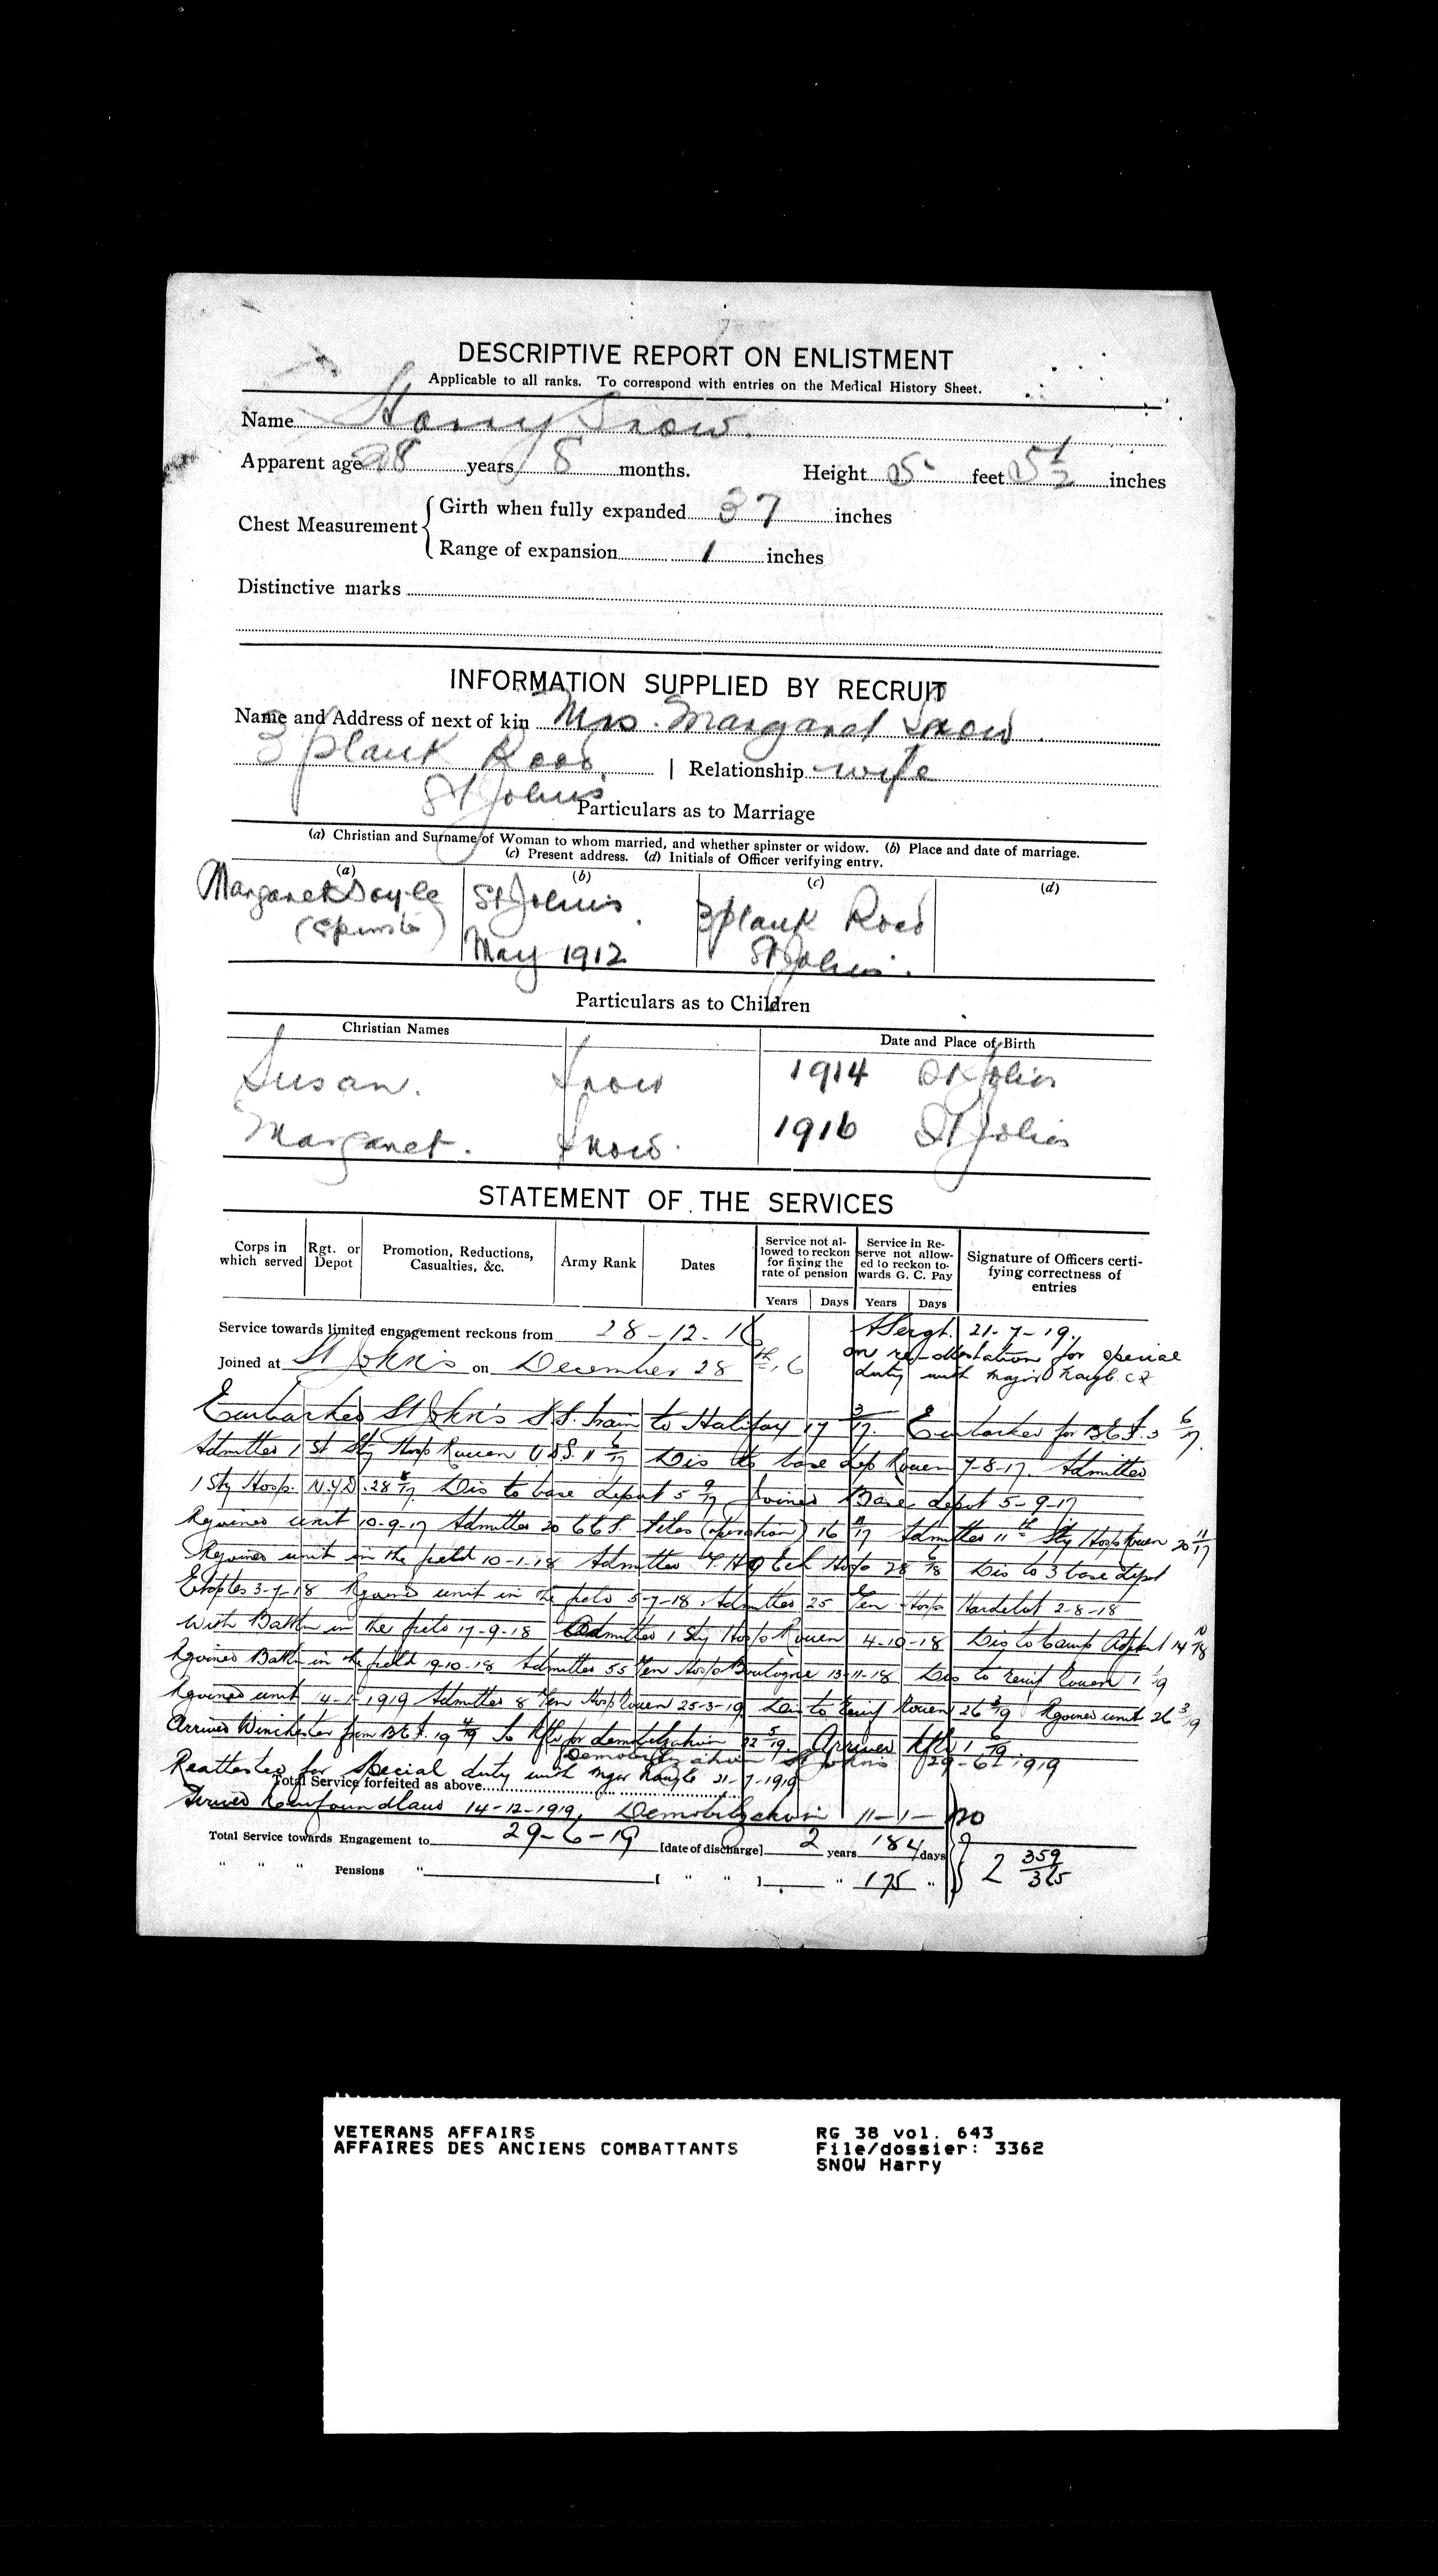 DESCRIPTIVE REPORT ON ENLISTMENT
Applicable to all ranks. To correspond with entries on the Medical History Sheet.
Name Harry Snow.
Apparent age 28 years 8 months. Height 5 feet 5 1/2 inches
Chest Measurement { Girth when fully expanded 37 inches
Range of expansion 1 inches
Distinctive marks
INFORMATION SUPPLIED BY RECRUIT
Name and Address of next of kin Mrs. Margaret Snow.
3 plank Road, | Relationship wife
St John's
Particulars as to Marriage
(a) Christian and Surname of Woman to whom married, and whether spinster or widow. (b) Place and date of marriage.
(c) Present address. (d) Initials of Officer verifying entry.
(a) (b) (c) (d)
Margaret Doyle St John's. 3 plank Road
(Spinster) May 1912 St John's.
Particulars as to Children
Christian Names Date and Place of Birth
Susan. Snow 1914 St John's
Margaret. Snow. 1916 St John's
STATEMENT OF THE SERVICES
Corps in which served Rgt. or Depot Promotion, Reductions, Casualties, &c. Army Rank Dates Service not allowed to reckon for fixing the rate of pension Service in Reserve not allowed to reckon towards G. C. Pay Signature of Officers certifying correctness of entries
Years Days Years Days
Service towards limited engagement reckons from 28-12-16 A/Sergt. 21-7-19.
on re-attestation for special
Joined at St John's on December 28th, 16 duty with Major Nangle C.F.
Embarked St John's S.S. to Halifax 17 3/17. Embarked for B.E.F. 3 6/17.
Admitted 1st Sty Hosp Rouen 11 6/17 Dis to base dep Rouen 7-8-17. Admitted
1 Sty Hosp. N.Y.D. 28 8/17. Dis to base depot 5 9/17 Joined Base depot 5-9-17
Rejoined unit 10-9-17 Admitted 20 C.C.S. (operation) 16 11/17 Admitted 11th Sty Hosp Rouen 20 11/17
Rejoined unit in the field 10-1-18 Admitted Hosp 28 6/18 Dis to 3 base depot
Etaples 3-7-18 Rejoined unit in the field 5-7-18. Admitted 25 Gen Hosp Hardelot 2-8-18
With Battn in the field 17-9-18 Admitted 1 Sty Hosp Rouen 4-10-18 Dis to Camp 14 10/18
Rejoined Battn in the field 19-10-18 Admitted 55 Gen Hosp Boulogne 13-11-18 Dis to reinf Rouen 1 1/19
Rejoined unit 14-1-1919 Admitted 8 Gen Hosp Rouen 25-3-19 Dis to reinf Rouen 26 3/19 Rejoined unit 26 3/19
Arrived Winchester from B.E.F. 19 4/19 To Nfld for demobilization 22 5/19. Arrived Nfld 1 6/19
Demobilization St John's 29-6-1919
Reattested for Special duty with Major Nangle 21-7-1919
Total Service forfeited as above
Newfoundland 14-12-1919, Demobilization 11-1-20
Total Service towards Engagement to 29-6-19 [date of discharge] 2 years 184 days } 2 359/365
" " " Pensions " [ " " ] " 175 "
VETERANS AFFAIRS RG 38 vol. 643
AFFAIRES DES ANCIENS COMBATTANTS File/dossier: 3362
SNOW Harry